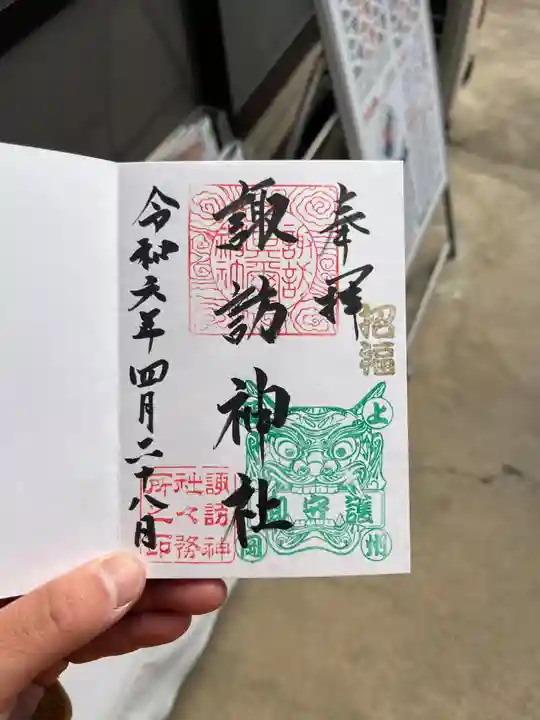 奉拝
招福
諏訪神社
令和六年四月二十八日
諏訪神
社々務
所之印
上
州
岡